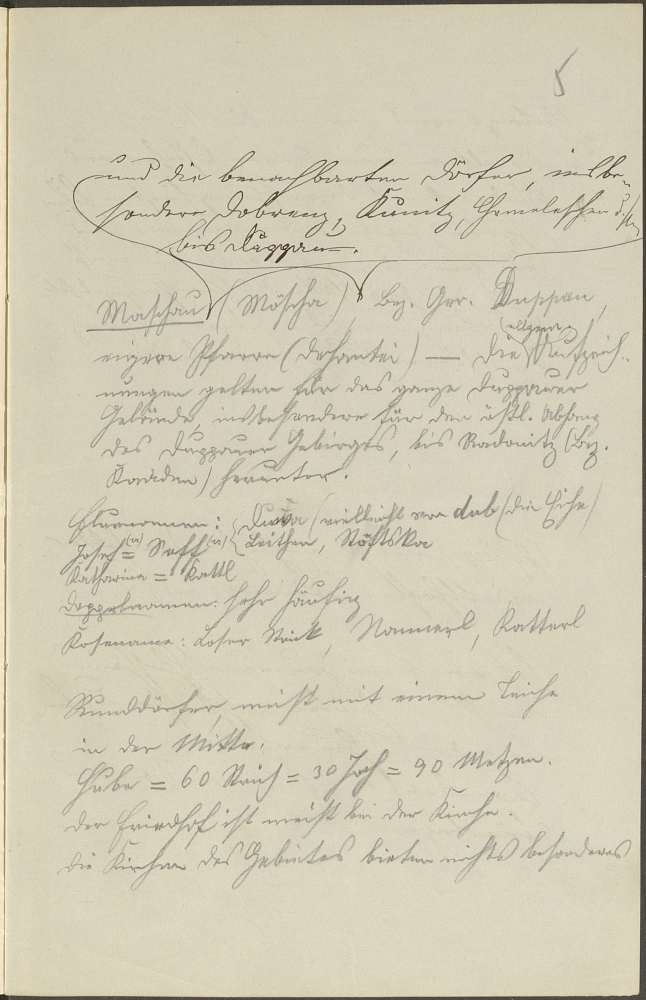 5
und die benachbarten Dörfer, insbe-
sondere Dobrenz, Kunitz, Gomeleschen
bis Duppau.
Maschau (Möscha), Bez. Ger. Duppau,
eigene Pfarre (Dechantei) — die Aufzeich-
(allgem.)
nungen gelten für das ganze Duppauer
Gelände, insbesondere für den östl. Abhang
des Duppauer Gebirges, bis Radonitz (Bez.
Kaaden) herunter.
Flurnamen: (vielleicht von dub (die Eiche)
Josef = Seff Leithen,
Katharina = Kattl
Doppelnamen: sehr häufig
Kosename: Nannerl, Katterl
Runddörfer, meist mit einem Teiche
in der Mitte.
Hube = 60 Strich = 30 Joch = 90 Metzen.
Der Friedhof ist meist bei der Kirche.
Die Kirchen des Gebietes bieten nichts besonderes